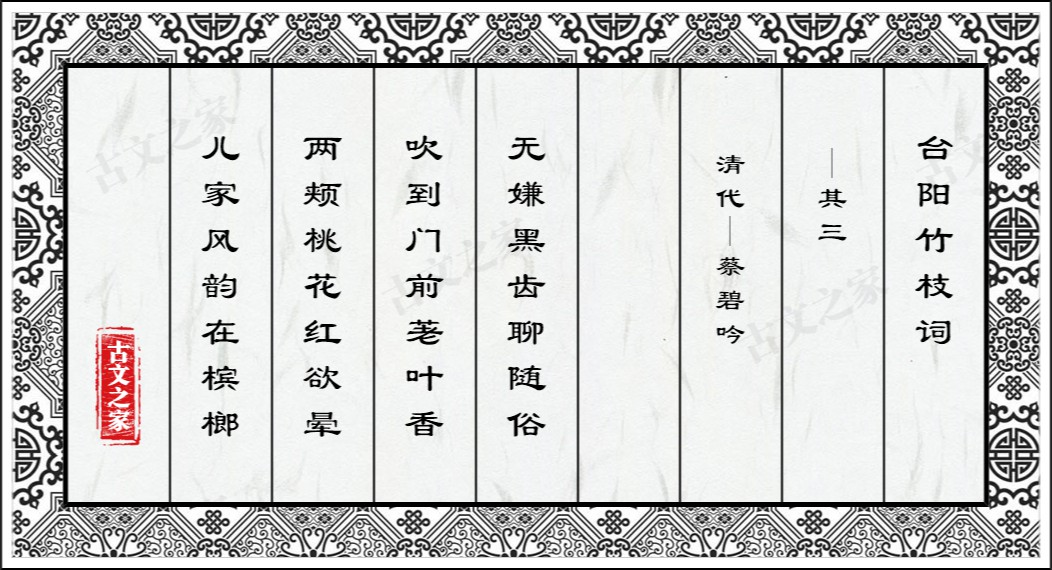 台阳竹枝词
—其三
清代—蔡碧吟
无嫌黑齿聊随俗
吹到门前荖叶香
两颊桃花红欲晕
儿家风韵在槟榔
古文之家
古文之家
古文之家
古文之家